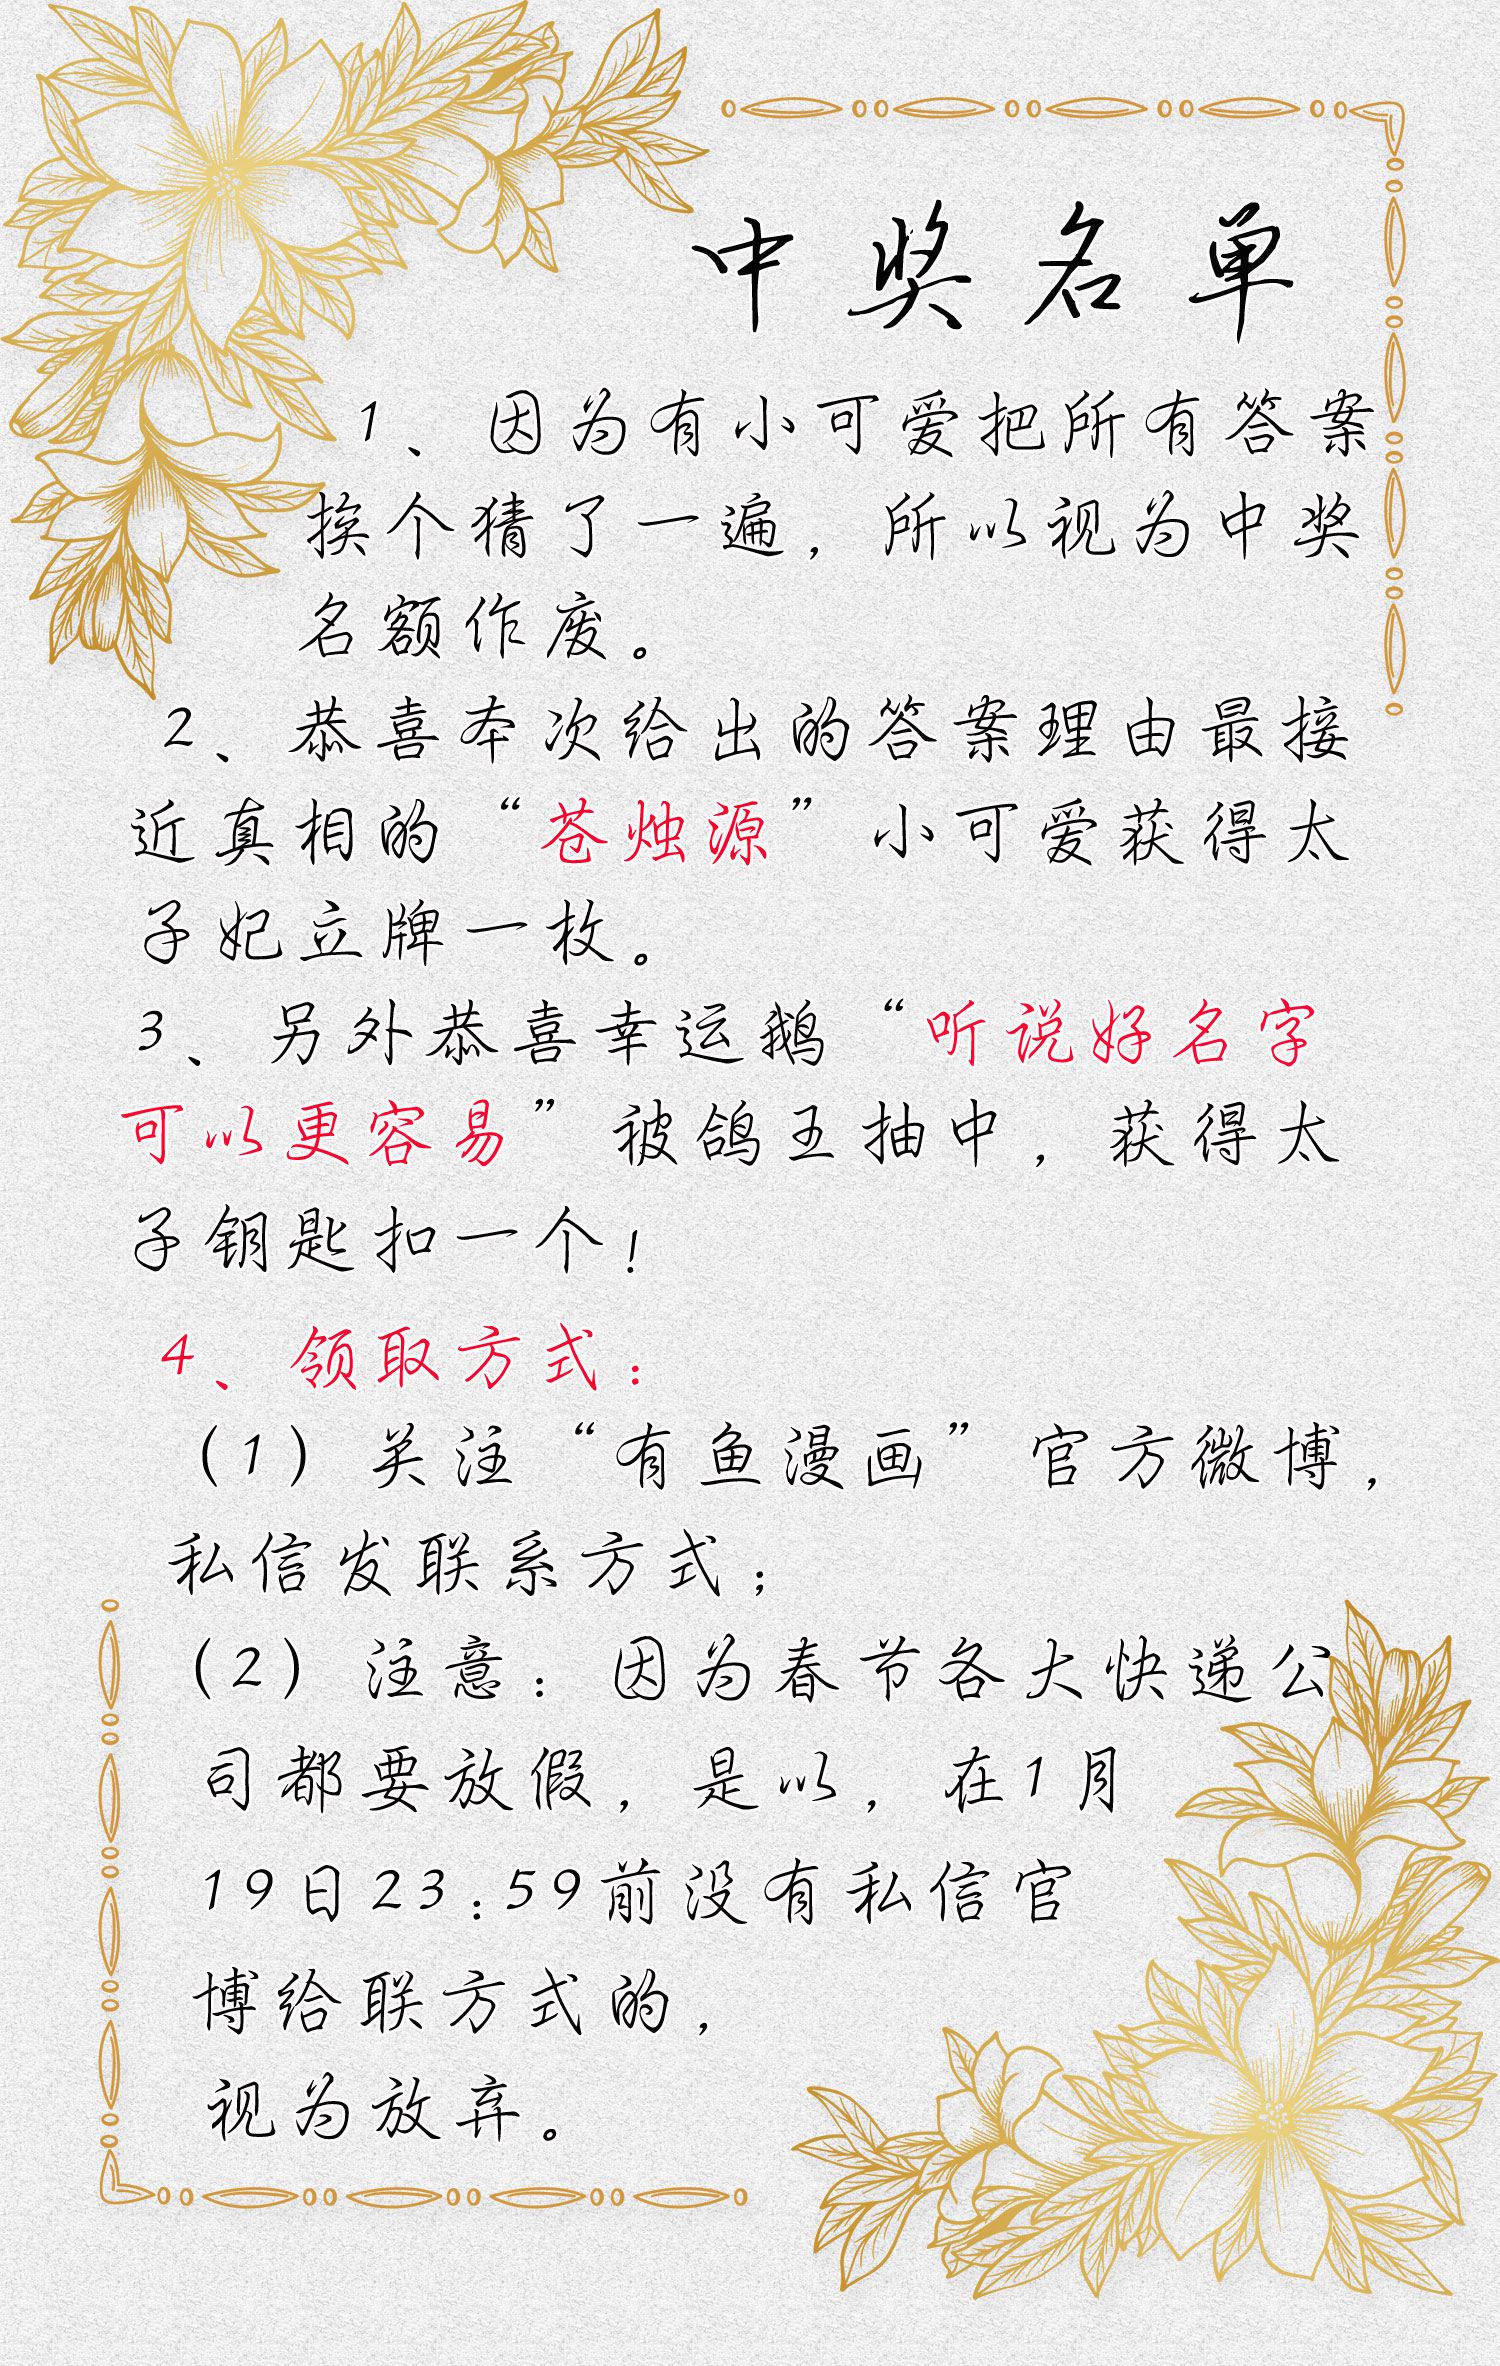 中奖名单
1、因为有小可爱把所有答案
挨个猜了一遍，所以视为中奖
名额作废。
2、恭喜本次给出的答案理由最接
近真相的“苍烛源”小可爱获得太
子妃立牌一枚。
3、另外恭喜幸运鹅“听说好名字
可以更容易”被鸽王抽中，获得太
子钥匙扣一个！
4、领取方式：
（1）关注“有鱼漫画”官方微博，
私信发联系方式；
（2）注意：因为春节各大快递公
司都要放假，是以，在1月
19日23:59前没有私信官
博给联方式的，
视为放弃。